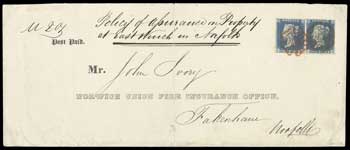 Policy of Assurance on Property
at East Ruston in Norfolk
Post Paid.
Mr. John Ivory
NORWICH UNION FIRE INSURANCE OFFICE,
Fakenham
Norfolk